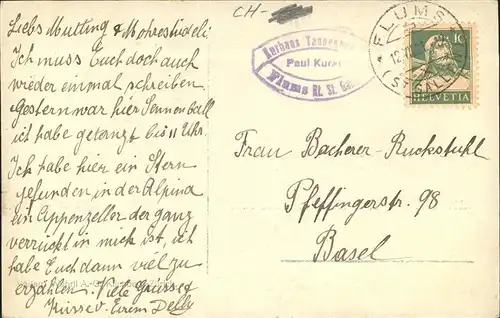 CH-
Liebs Mutting & Mohrestüdeli
Ich muss Euch doch auch
wieder einmal schreiben
Gestern war hier Sennenball
ich habe getanzt bis 11 Uhr.
Ich habe hier ein Stern
gefunden in der Alpina
ein Appenzeller der ganz
verrückt in mich ist, ich
habe Euch dann viel zu
erzählen. Viele Grüsse &
Küsse v. Eurem Delly
Kurhaus
Paul Kurer
Flums Kt. St. Gallen
FLUMS
(ST. GALLEN)
10
HELVETIA
Frau Bacherer-Ruckstuhl
Pfeffingerstr. 98
Basel